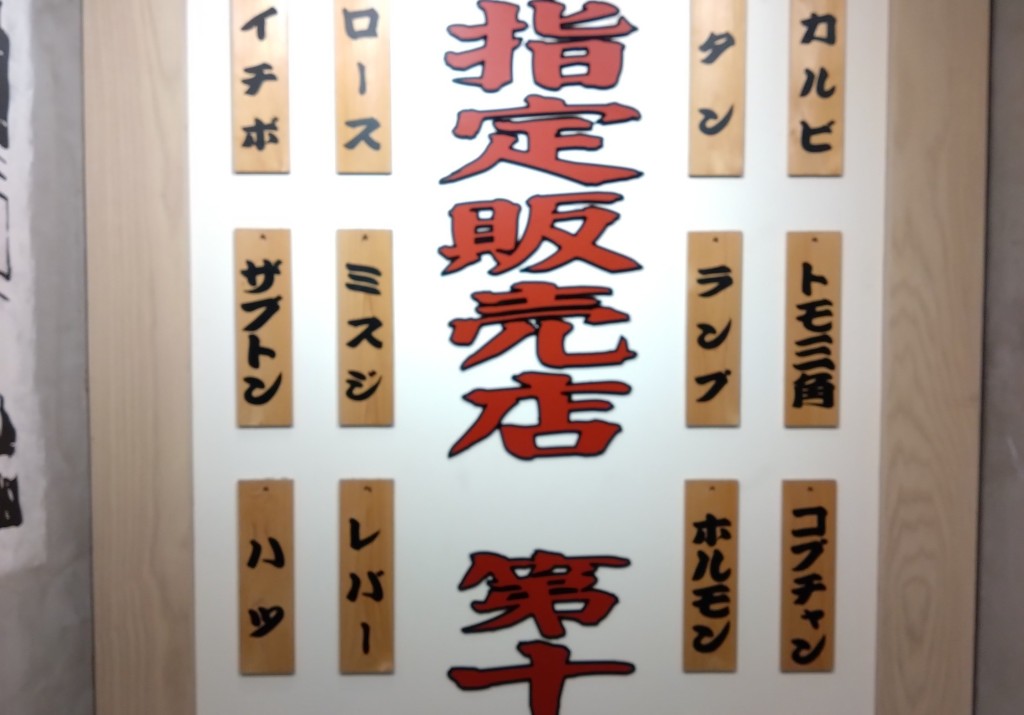 カルビ
タン
指定販売店 第十
ロース
イチボ
トモ三角
ランプ
ミスジ
ザブトン
コプチャン
ホルモン
レバー
ハツ